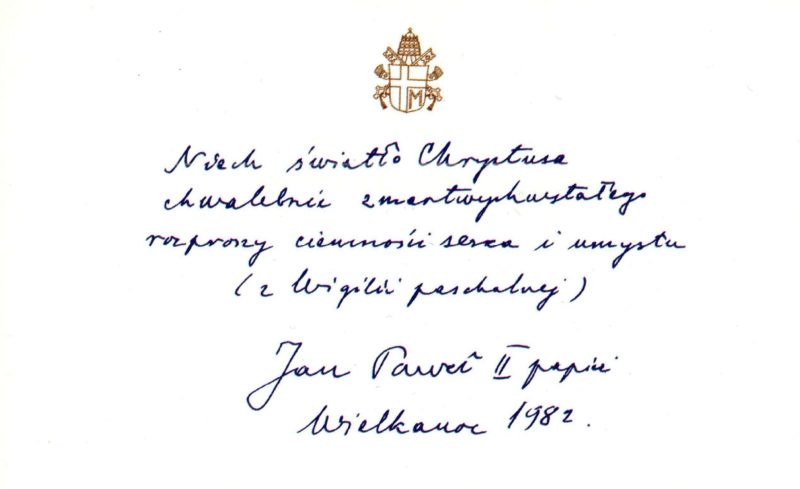 M
Niech światło Chrystusa
chwalebnie zmartwychwstałego
rozproszy ciemności serca i umysłu
(z Wigilii paschalnej)
Jan Paweł II papież
Wielkanoc 1982.